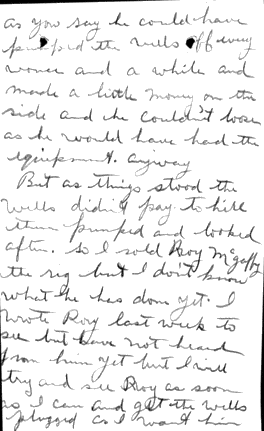 as you say he could have
pumped the wells off every
once and a while and
made a little money on the
side and he couldn't loose
as he would have had the
equipment. anyway
But as things stood the
wells didn't pay to hire
them pumped and looked
after. So I sold Roy McGaffey
the rig but I don't know
what he has done yet. I
wrote Roy last week to
see but have not heard
from him yet but I will
try and see Roy as soon
as I can and get the wells
plugged as I want him